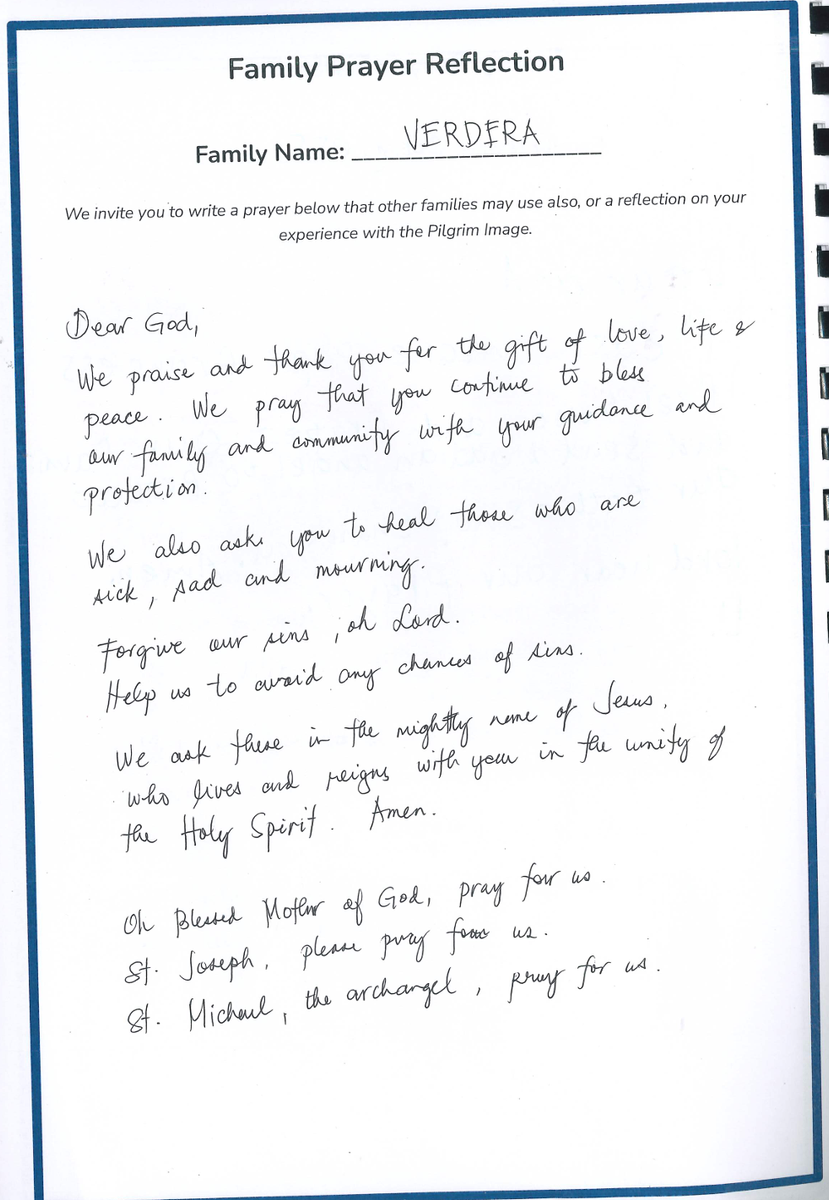 Family Prayer Reflection
Family Name: VERDERA
We invite you to write a prayer below that other families may use also, or a reflection on your
experience with the Pilgrim Image.
Dear God,
We praise and thank you for the gift of love, life &
peace. We pray that you continue to bless
our family and community with your guidance and
protection.
We also ask you to heal those who are
sick, sad and mourning.
Forgive our sins, oh Lord.
Help us to avoid any chances of sins.
We ask these in the mightly name of Jesus,
who lives and reigns with you in the unity of
the Holy Spirit. Amen.
Oh Blessed Mother of God, pray for us.
St. Joseph, please pray for us.
St. Michael, the archangel, pray for us.